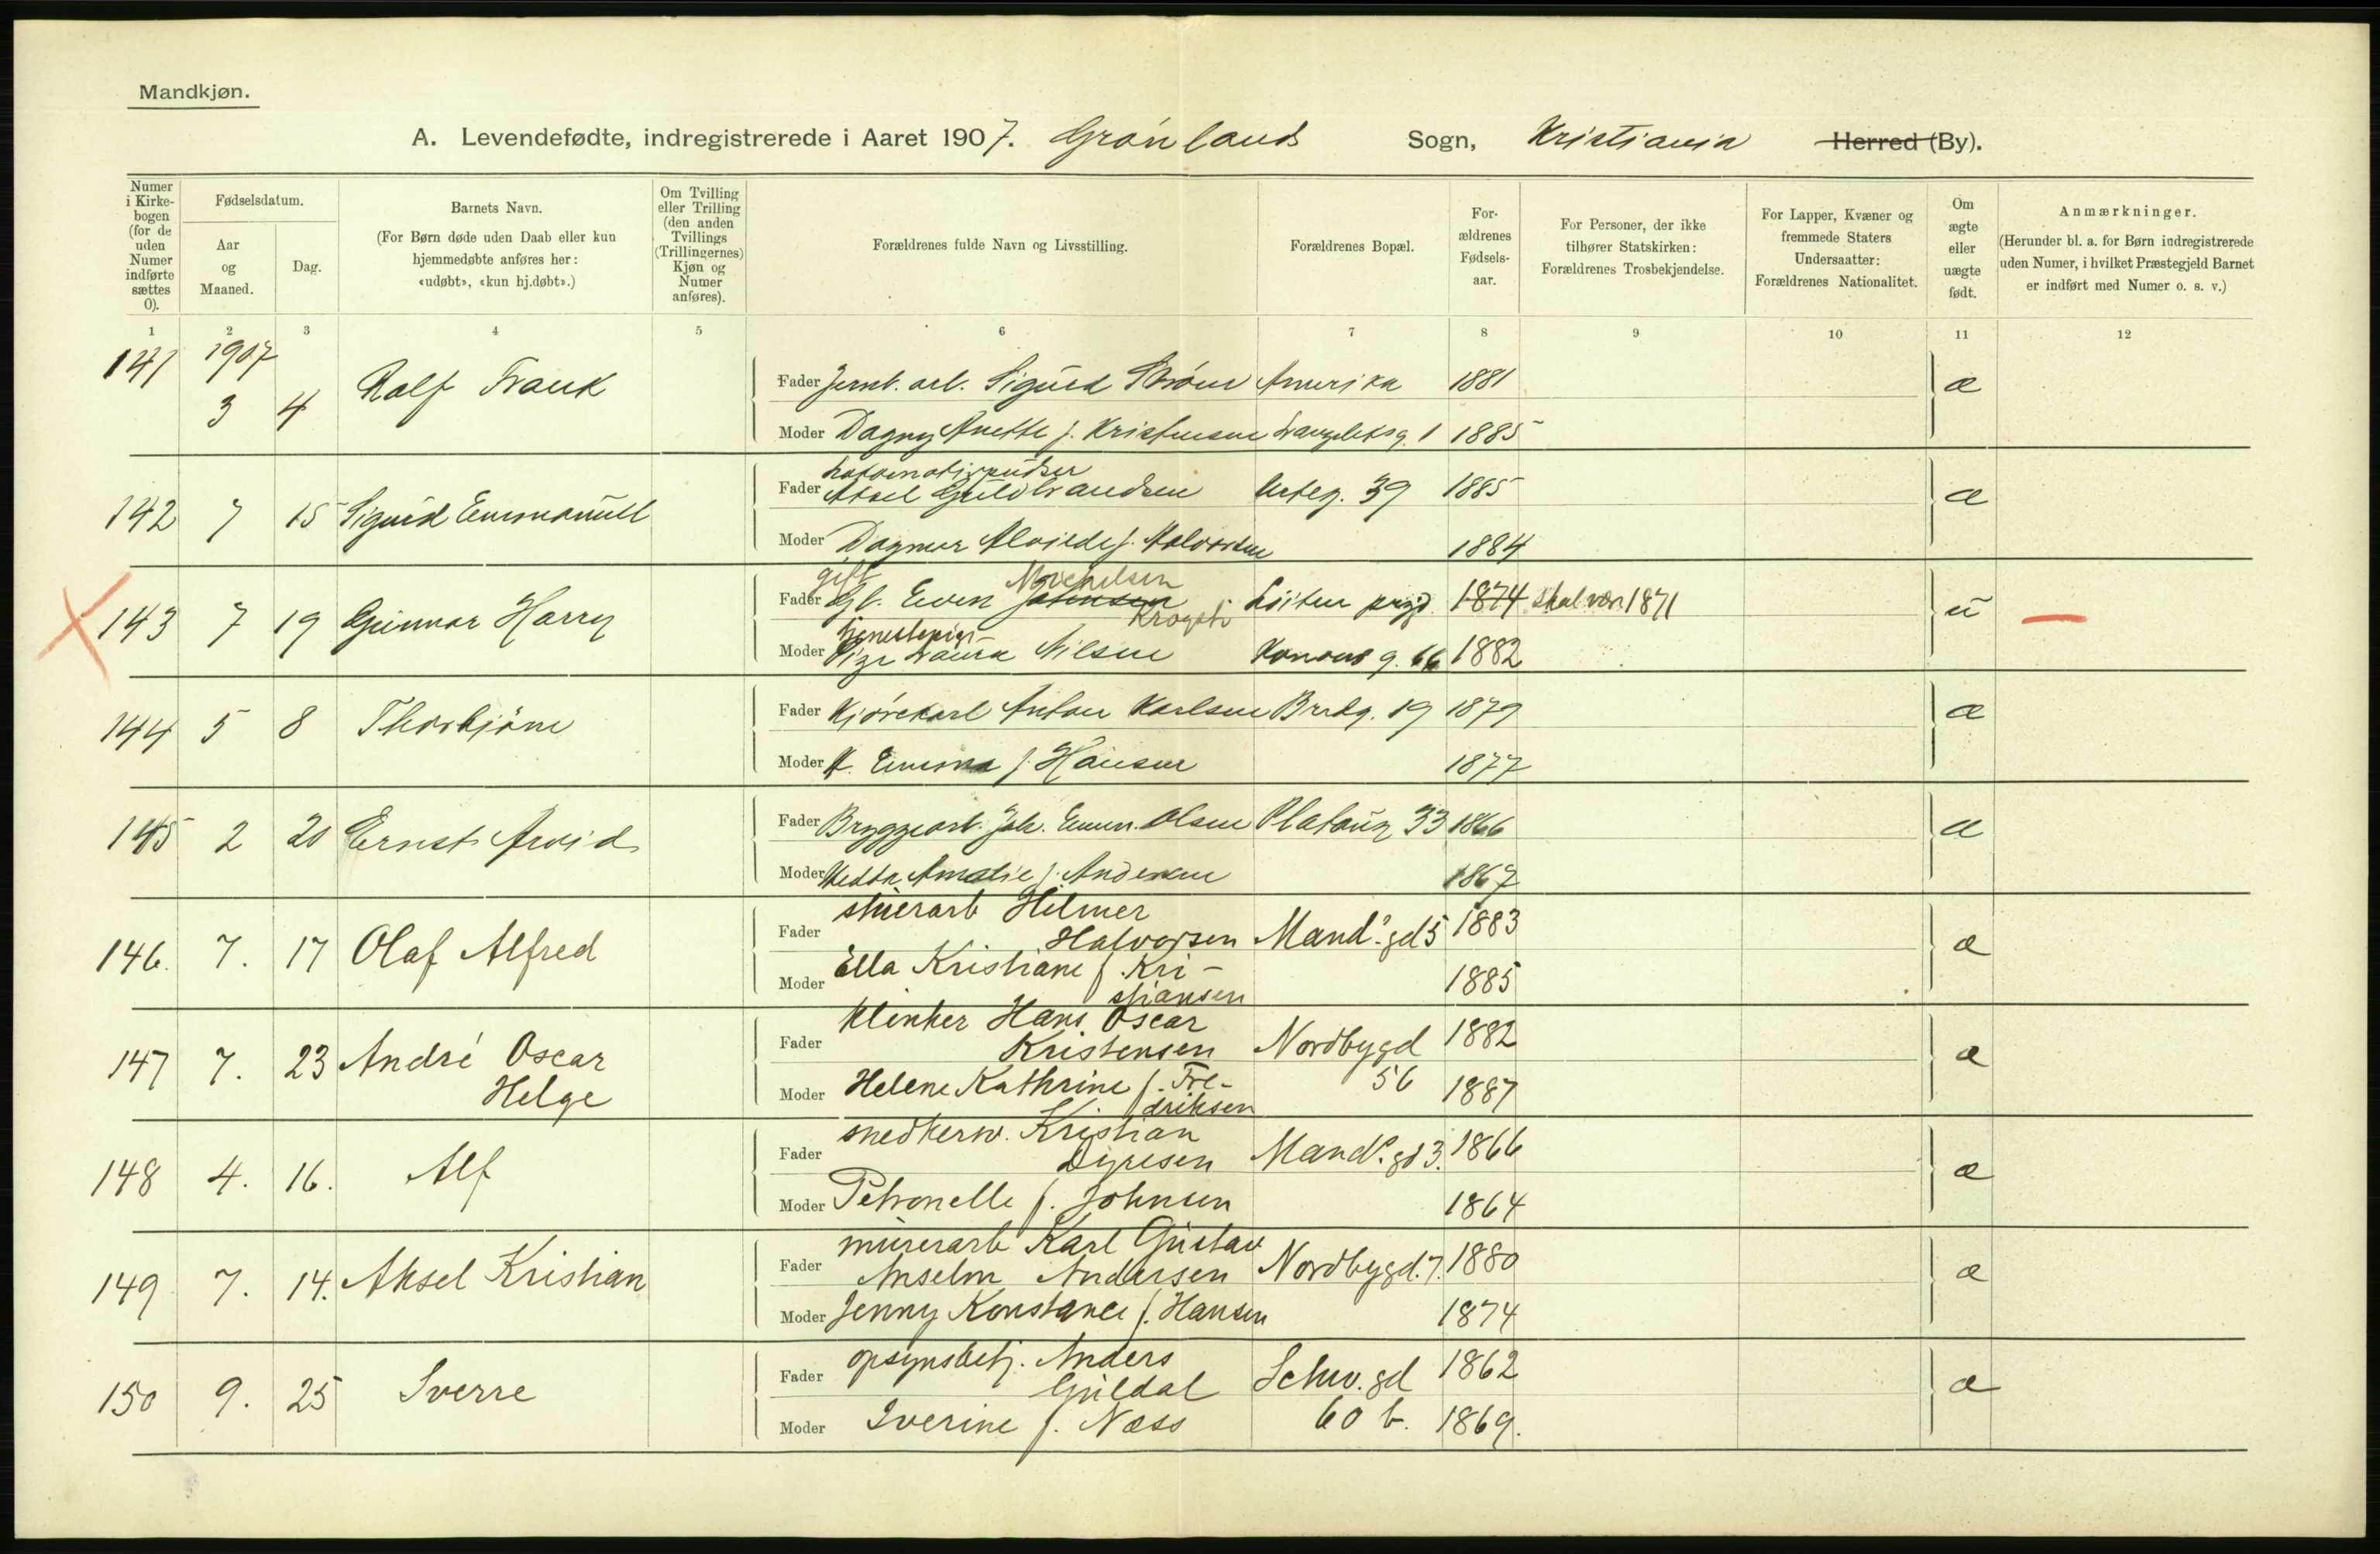 Mandkjøn.
A. Levendefødte, indregistrerede i Aaret 1907. Grønlands Sogn, Kristiania Herred (By).
Numer i Kirkebogen (for de uden Numer indførte sættes 0).
Fødselsdatum.
Aar og Maaned.
Dag.
Barnets Navn.
(For Børn døde uden Daab eller kun hjemmedøbte anføres her: «udøbt», «kun hj.døbt».)
Om Tvilling eller Trilling (den anden Tvillings (Trillingernes) Kjøn og Numer anføres).
Forældrenes fulde Navn og Livsstilling.
Forældrenes Bopæl.
Forældrenes Fødselsaar.
For Personer, der ikke tilhører Statskirken: Forældrenes Trosbekjendelse.
For Lapper, Kvæner og fremmede Staters Undersaatter: Forældrenes Nationalitet.
Om ægte eller uægte født.
Anmærkninger.
(Herunder bl. a. for Børn indregistrerede uden Numer, i hvilket Præstegjeld Barnet er indført med Numer o. s. v.)
1 2 3 4 5 6 7 8 9 10 11 12
1907
141 3 4 Ralf Frank Fader Jernb. arb. Sigurd Strøm Amerika 1881 æ
Moder Dagny Anette f. Kristensen 1 1885
142 7 15 Sigurd Emmanuel Fader Lokomotivpudser
Aksel Guldbrandsen Urteg. 39 1885 æ
Moder Dagmar Alvilde f. Halvorsen 1884
143 7 19 Gunnar Harry Fader gift Michelsen
Gb. Even Johnsen Løiten prgd. 1874 skal være 1871 u
Krogsti
Moder tjenestepige
Laura Nilsen 66 1882
144 5 8 Thorbjørn Fader Kjørekarl Anton Karlsen Bredg. 19 1879 æ
Moder K. Emma f. Hansen 1877
145 2 20 Ernst Arvid Fader Bryggearb. Joh. Emen. Olsen Platoug 33 1866 æ
Moder Hedda Amalie f. Andersen 1867
146. 7. 17 Olaf Alfred Fader stuerarb Hilmer
Halvorsen Mand. gd 5 1883 æ
Moder Ella Kristiane f. Kri-
stiansen 1885
147 7. 23 André Oscar
Helge Fader klinker Hans Oscar
Kristensen Nordbygd 1882 æ
Moder Helene Kathrine f. Fre-
driksen 56 1887
148 4. 16. Alf Fader snedkersv. Kristian
Dyresen Mand. gd 3. 1866 æ
Moder Petronelle f. Johnsen 1864
149 7. 14. Aksel Kristian Fader murerarb Karl Gustav
Anselm Andersen Nordbygd. 7. 1880 æ
Moder Jenny Konstance f. Hansen 1874
150 9. 25 Sverre Fader opsynsbetj. Anders
Guldal Schw. gd 1862 æ
Moder Iverine f. Næss 60 b. 1869.